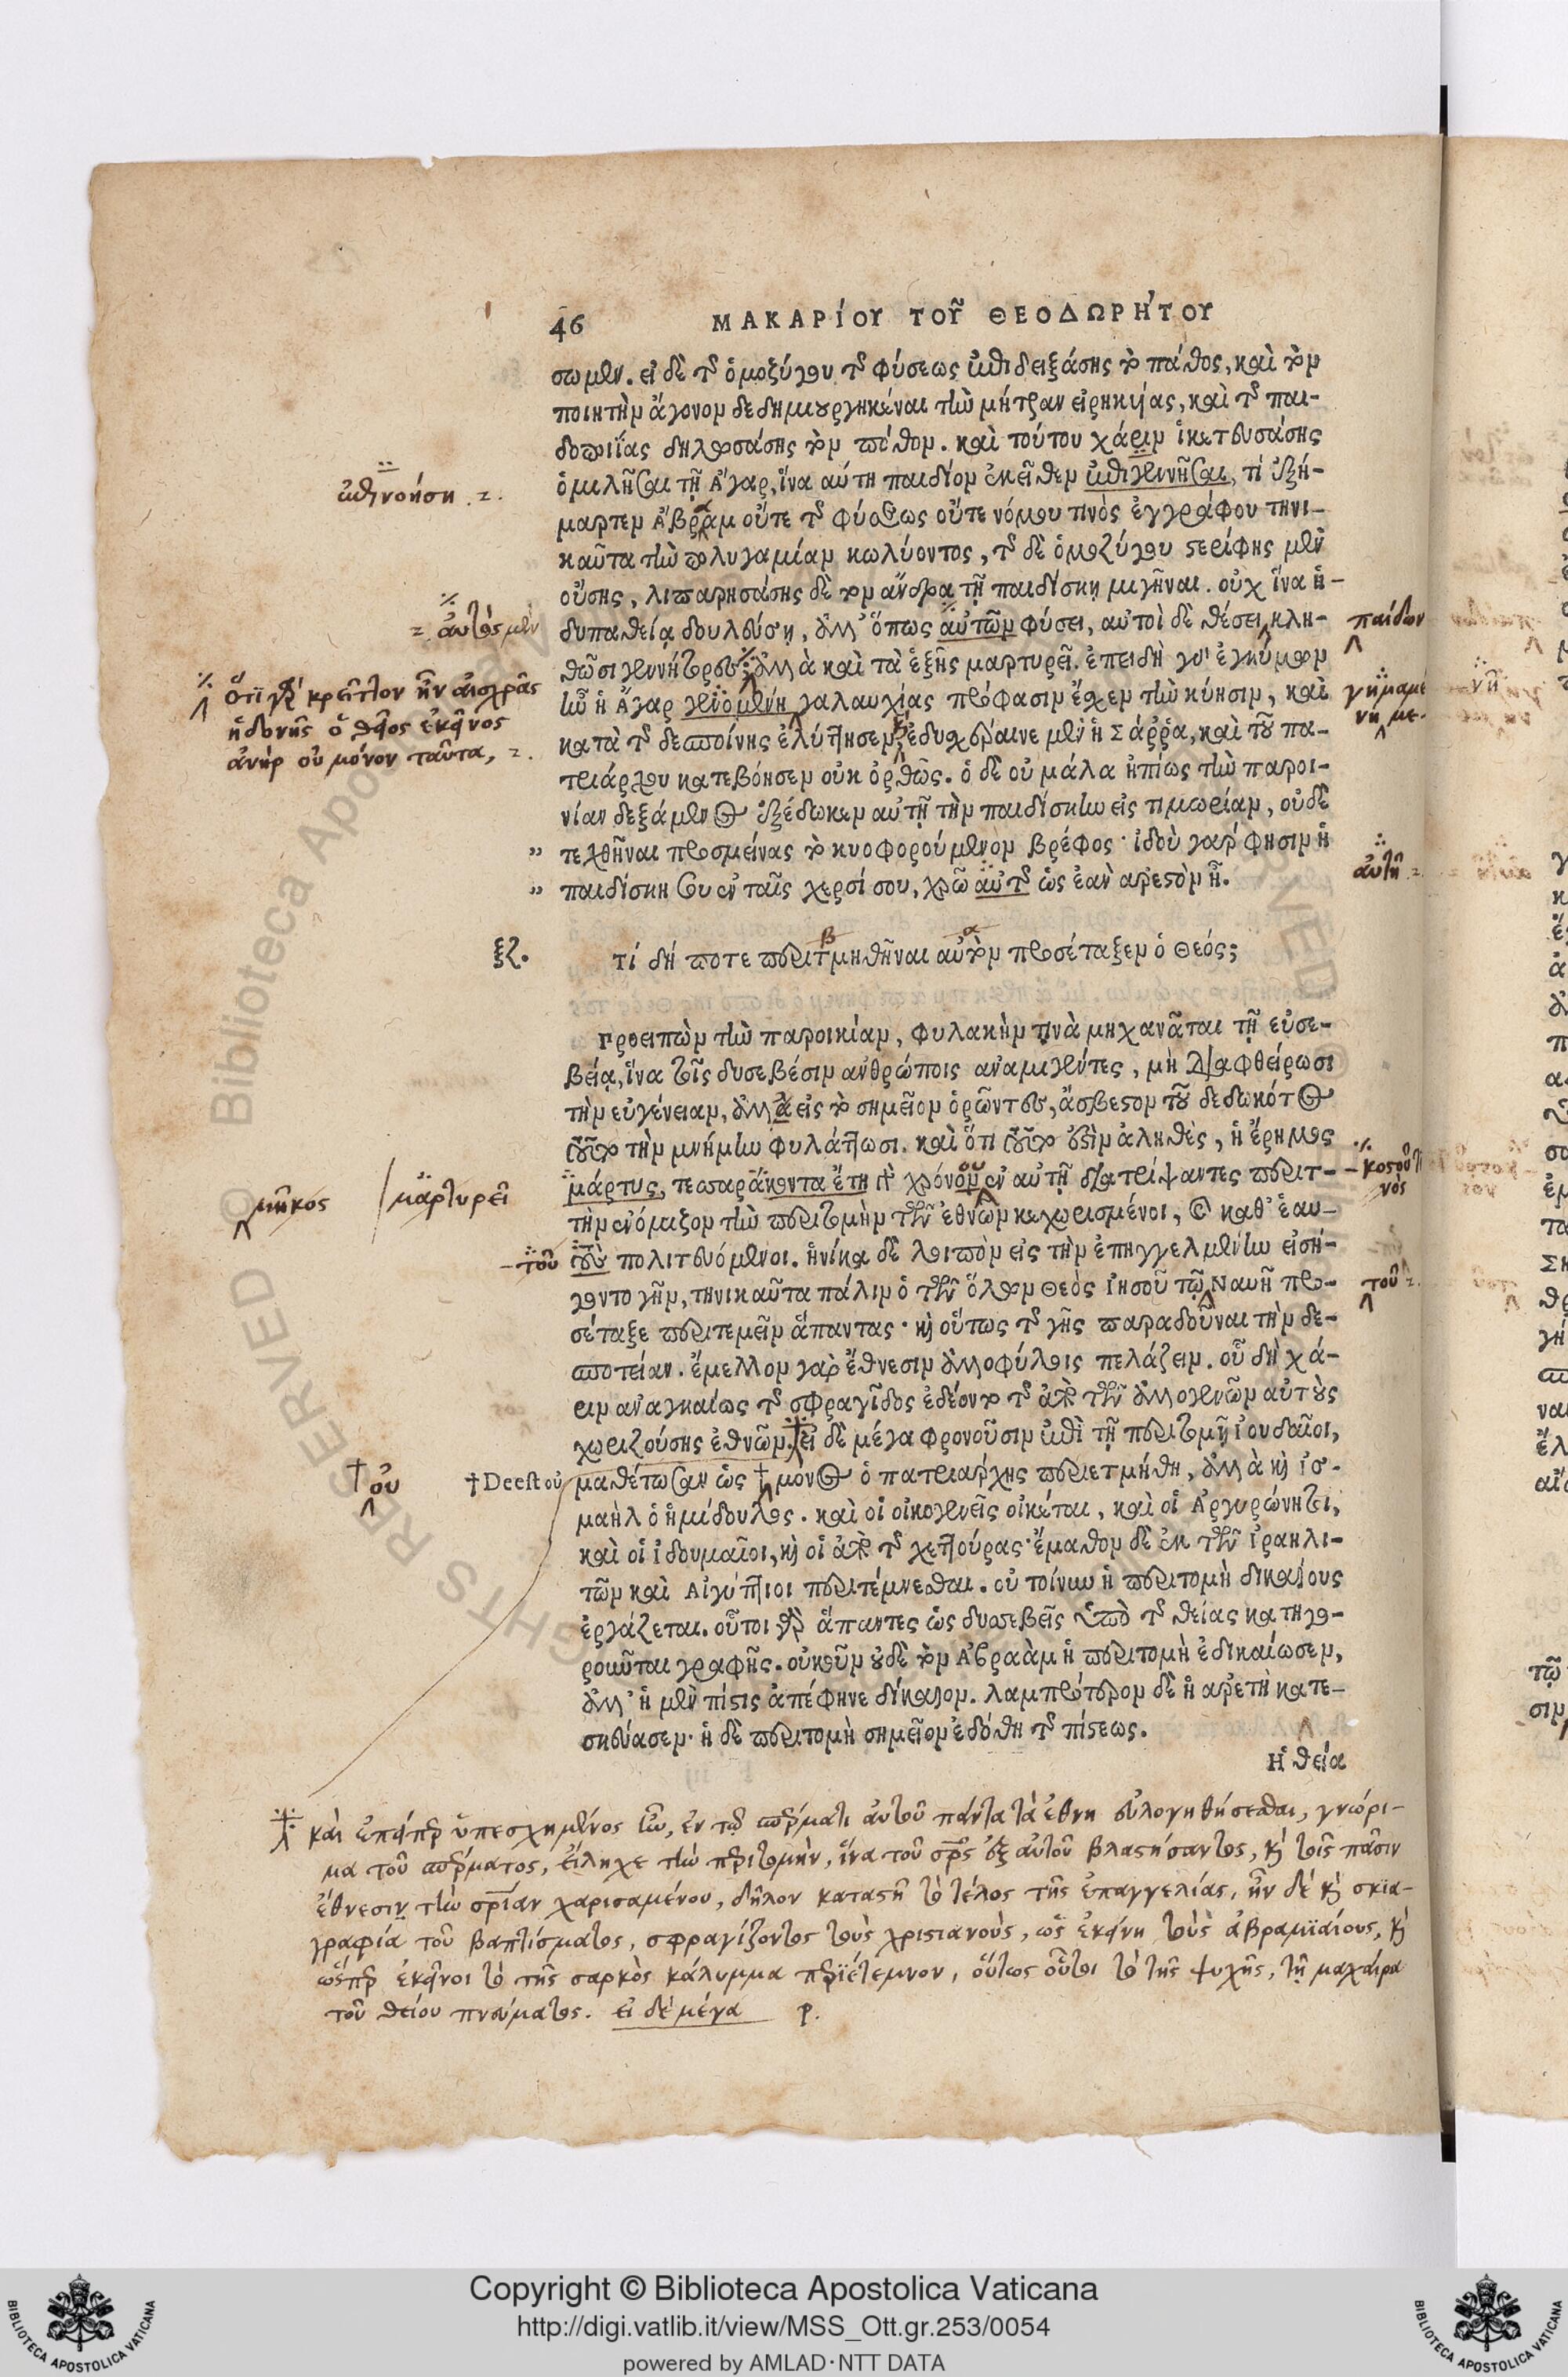 46 ΜΑΚΑΡίΟΥ ΤΟΥ͂ ΘΕΟΔΩΡΉΤΟΥ
σωμεν. εἰ δὲ τῆς ὁμοζύγου τῆς φύσεως ἐπιδειξάσης τὸ πάθος, καὶ τὸν
ποιητὴν ἄγονον δεδημιουργηκέναι τὴν μήτραν εἰρηκυίας, καὶ τῆς παι-
δοποιΐας δηλωσάσης τὸν πόθον. καὶ τούτου χάριν ἱκετευσάσης
ἐπινοήση .
ὁμιλῆσαι τῇ Ἄγαρ, ἵνα αὐτῇ παιδίον ἐκεῖθεν ἐπιγεννῆσαι, τί ἐξή-
μαρτεν Ἀβραάμ οὔτε τῆς φύσεως οὔτε νόμου τινὸς ἐγγράφου τηνι-
καῦτα τὴν πολυγαμίαν κωλύοντος, τῆς δὲ ὁμοζύγου στερίφης μὲν
οὔσης, λιπαρησάσης δὲ τὸν ἄνδρα τῇ παιδίσκῃ μιγῆναι. οὐχ ἵνα ἡ-
αὐτὸς μὲν
δυπαθείᾳ δουλεύσῃ, ἀλλ' ὅπως αὐτῶν φύσει, αὐτοὶ δὲ θέσει κλη-
παίδων
ὅτι γὰρ κρεῖττον ἦν αἰσχρᾶς
ἡδονῆς ὁ θεῖος ἐκεῖνος
ἀνὴρ οὐ μόνον ταῦτα,
θῶσι γεννήτορες ἀλλὰ καὶ τὰ ἑξῆς μαρτυρεῖ. ἐπειδὴ γὰρ ἐγκύμων
ἦν ἡ Ἄγαρ γενομένη μεγαλαυχίας πρόφασιν ἔχειν τὴν κύησιν, καὶ
γημαμέ
νη με.
κατὰ τῆς δεσποίνης ἐλύττησεν, ἐδυσχέραινε μὲν ἡ Σάῤῥα, καὶ τοῦ πα-
τριάρχου κατεβόησεν οὐκ ὀρθῶς. ὁ δὲ οὐ μάλα ἠπίως τὴν παροι-
νίαν δεξάμενος ἐξέδωκεν αὐτῇ τὴν παιδίσκην εἰς τιμωρίαν, οὐδὲ
" τεχθῆναι προσμείνας τὸ κυοφορούμενον βρέφος· ἰδοὺ γάρ φησιν ἡ
" παιδίσκη σου ἐν ταῖς χερσί σου, χρῶ αὐτῆς ὡς ἐὰν ἀρεστὸν ᾖ.
αὐτῇ
ξζ. Τί δή ποτε περιτμηθῆναι αὐτὸν προσέταξεν ὁ Θεός;
β α
Προειπὼν τὴν παροικίαν, φυλακήν τινὰ μηχανᾶται τῇ εὐσε-
βείᾳ, ἵνα τοῖς δυσεβέσιν ἀνθρώποις ἀναμιγέντες, μὴ διαφθείρωσι
τὴν εὐγένειαν, ἀλλὰ εἰς τὸ σημεῖον ὁρῶντες, ἄσβεστον τοῦ δεδωκότος
τοῦτο τὴν μνήμην φυλάττωσι. καὶ ὅτι τοῦτό ἐστιν ἀληθὲς, ἡ ἔρημος
μῆκος / μαρτυρεῖ
μάρτυς, τεσσαράκοντα ἔτη γὰρ χρόνον ἐν αὐτῇ διατρίψαντες περιτ-
τὴν ἐνόμιζον τὴν περιτομὴν τῶν ἐθνῶν κεχωρισμένοι, καὶ καθ' ἑαυ-
τοῦ
τοὺς πολιτευόμενοι. ἡνίκα δὲ λοιπὸν εἰς τὴν ἐπηγγελμένην εἰσή-
γοντο γῆν, τηνικαῦτα πάλιν ὁ τῶν ὅλων Θεὸς Ἰησοῦ τῷ Ναυῆ προ-
τοῦ
σέταξε περιτεμεῖν ἅπαντας· καὶ οὕτως τῆς γῆς παραδοῦναι τὴν δε-
σποτείαν. ἔμελλον γὰρ ἔθνεσιν ἀλλοφύλοις πελάζειν. οὗ δὴ χά-
ριν ἀναγκαίως τῆς σφραγῖδος ἐδέοντο τῆς ἀπὸ τῶν ἀλλογενῶν αὐτοὺς
χωριζούσης ἐθνῶν. εἰ δὲ μέγα φρονοῦσιν ἐπὶ τῇ περιτομῇ Ἰουδαῖοι,
† οὐ
† Deest οὐ
μαθέτωσαν ὡς † μόνος ὁ πατριάρχης περιετμήθη, ἀλλὰ καὶ Ἰσ-
μαὴλ ὁ ἡμίδουλος. καὶ οἱ οἰκογενεῖς οἰκέται, καὶ οἱ Ἀργυρώνητοι,
καὶ οἱ Ἰδουμαῖοι, καὶ οἱ ἀπὸ τῆς χεττούρας· ἔμαθον δὲ ἐκ τῶν Ἰσραηλι-
τῶν καὶ Αἰγύπτιοι περιτέμνεσθαι. οὐ τοίνυν ἡ περιτομὴ δικαίους
ἐργάζεται. οὗτοι γὰρ ἅπαντες ὡς δυσσεβεῖς ὑπὸ τῆς θείας κατηγο-
ροῦνται γραφῆς. οὐκοῦν οὐδὲ τὸν Ἀβραὰμ ἡ περιτομὴ ἐδικαίωσεν,
ἀλλ' ἡ μὲν πίστις ἀπέφηνε δίκαιον. λαμπρότερον δὲ ἡ ἀρετὴ κατε-
σκεύασεν· ἡ δὲ περιτομὴ σημεῖον ἐδόθη τῆς πίστεως.
Ἡ θεία
καὶ ἐπείπερ ὑπεσχημένος ἦν, ἐν τῷ σπέρματι αὐτοῦ πάντα τὰ ἔθνη εὐλογηθήσεσθαι, γνώρι-
μα τοῦ σπέρματος, εἴληχε τὴν περιτομὴν, ἵνα τοῦ σρς ἐξ αὐτοῦ βλαστήσαντος, καὶ τοῖς πᾶσιν
ἔθνεσιν τὴν σρίαν χαρισαμένου, δῆλον καταστῇ τὸ τέλος τῆς ἐπαγγελίας, ἦν δὲ καὶ σκια-
γραφία τοῦ βαπτίσματος, σφραγίζοντος τοὺς χριστιανοὺς, ὡς ἐκείνη τοὺς ἀβραμιαίους, καὶ
ὥσπερ ἐκεῖνοι τὸ τῆς σαρκὸς κάλυμμα περιέτεμνον, οὕτως οὗτοι τὸ τῆς ψυχῆς, τῇ μαχαίρᾳ
τοῦ θείου πνεύματος. εἰ δὲ μέγα ρ.
Copyright © Biblioteca Apostolica Vaticana
http://digi.vatlib.it/view/MSS_Ott.gr.253/0054
powered by AMLAD·NTT DATA
BIBLIOTECA APOSTOLICA VATICANA
BIBLIOTECA APOSTOLICA VATICANA